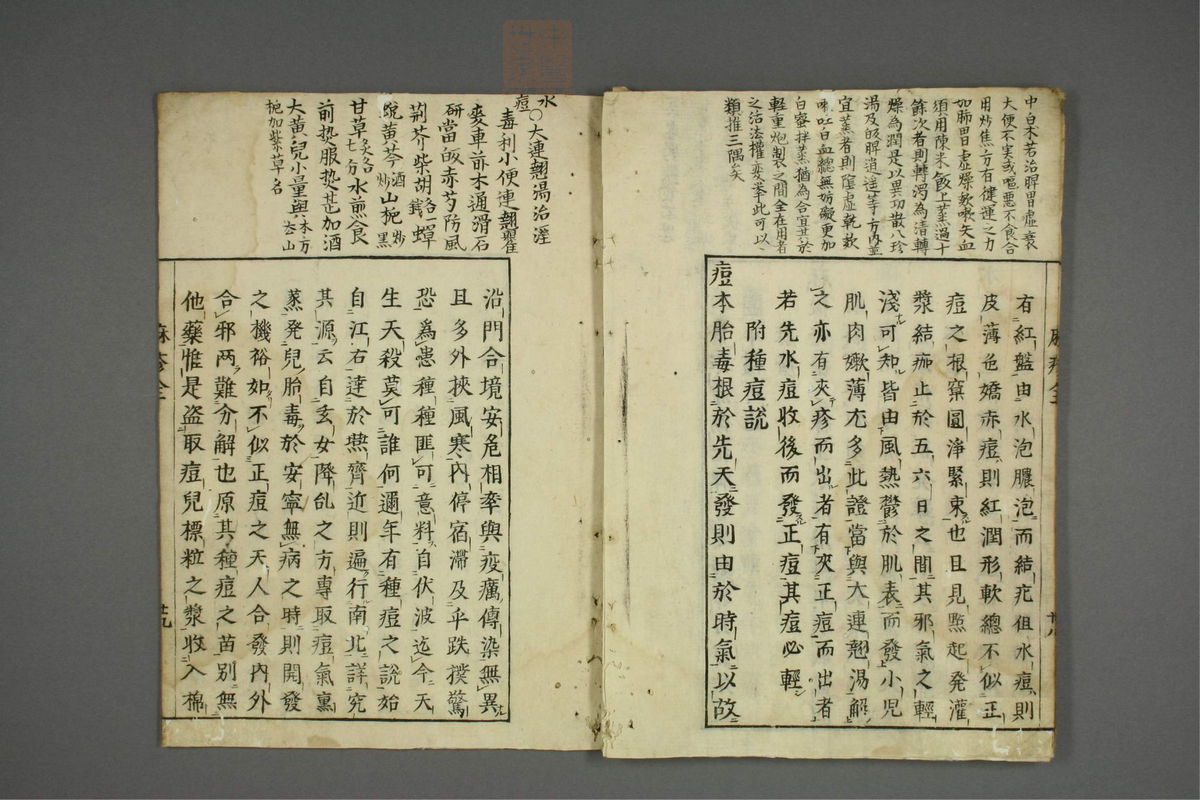 中白朮若治脾胃虛衰
大便不実或嘔悪不食合
用炒焦方有健運之力
如肺胃虛燥欬嗽失血
須用陳米飯上蒸過十
餘次者則轉濁為清轉
燥為潤是以異功散八珍
湯及啟脾逍遥等方内並
宜蒸者則陰虛乾欬
嗽吐白血總無妨礙更加
白蜜拌蒸猶為合宜其於
輕重炮製之間全在用者
之治法權変挙此可以
類推三隅矣
有紅盤由水泡膿泡而結疕但水痘則
皮薄色嬌赤痘則紅潤形軟總不似正
痘之根窠圓淨緊束也且見㸃起発灌
漿結痂止於五六日之間其邪氣之輕
淺可知皆由風熱鬱於肌表而發小児
肌肉嫰薄尤多此證當與大連翹湯解
之亦有夾疹而出者有夾正痘而出者
若先水痘收後而發正痘其痘必輕
附種痘說
痘本胎毒根於先天發則由於時氣以故
麻疹全
廿八
水痘
○大連翹湯治溼
毒利小便連翹瞿
麥車前木通滑石
研當皈赤芍防風
荆芥柴胡各一錢蟬
蛻黄芩酒炒山梔炒黒
甘草各七分水煎食
前热服热甚加酒
大黄兒小量與本方去山
梔加紫草名
沿門合境安危相率與疫癘傳染無異
且多外挾風寒內停宿滞及乎跌撲驚
恐為患種種匪可意料自伏波迄今天
生天殺莫可誰何邇年有種痘之說始
自江右達於燕齊近則遍行南北詳究
其源云自玄女降乩之方專取痘氣熏
蒸発兒胎毒於安寧無病之時則開發
之機裕如不似正痘之天人合發內外
合邪两難分解也原其種痘之苗别無
他藥惟是盗取痘兒標粒之漿收入棉
麻疹全
廿九